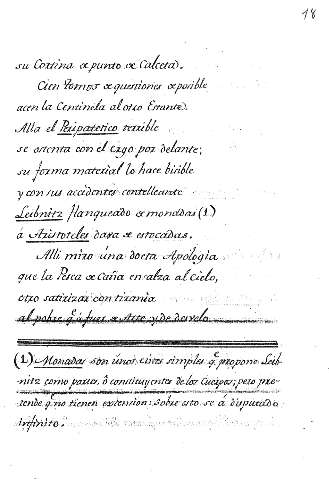 18
su Cortina de punto de Calceta.
Cien tomos de questiones de posible
acen la Centinela al otro Errante.
Alla el Peripatetico terrible
se ostenta con el ergo por delante;
su forma material lo hace bisible
y con sus accidentes centelleante
Leibnitz flanqueado de monadas (1)
á Aristoteles dara de estocadas.
Alli miro úna docta Apologia
que la Pesca de Caña ensalza al Cielo,
otro satirizar con tirania
al pobre q.e á fuer de Arte y de desvelo
(1) Monadas son únos entes simples q.e propone Leib-
nitz como partes, ó constituyentes de los Cuerpos; pero pre-
tende q.e no tienen extension: sobre esto se á disputado
infinito.